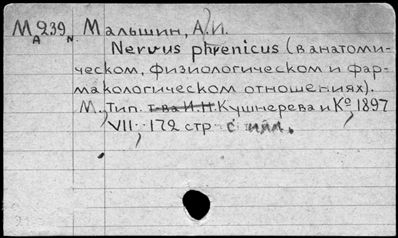 М 239 Мальшин, А.И.
А N.
Nervus phrenicus (в анатоми-
ческом, физиологическом и фар-
макологическом отношениях).
М., Тип. т-ва И.Н. Кушнерева и Кº, 1897
VII, 172 стр. с илл.